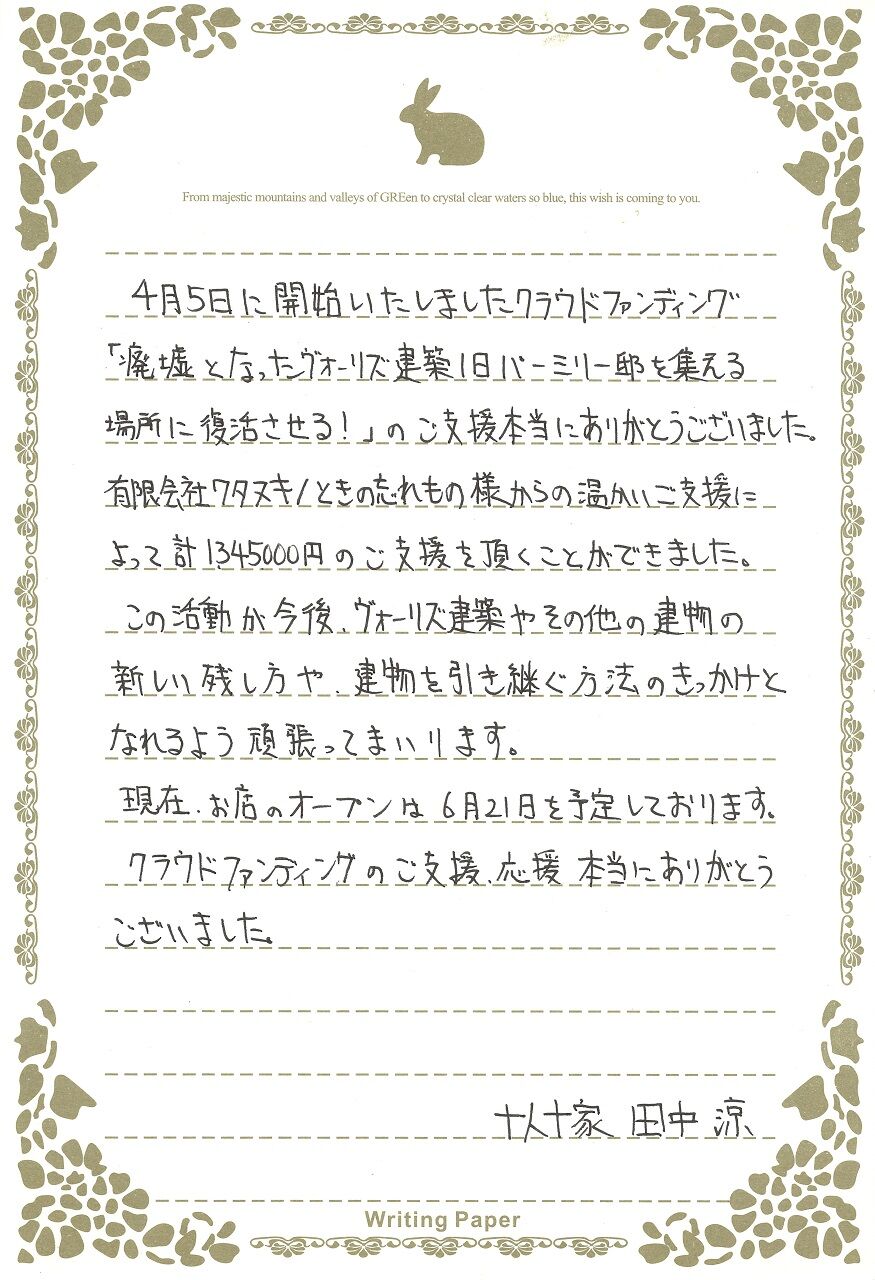 From majestic mountains and valleys of GREen to crystal clear waters so blue, this wish is coming to you.
4月5日に開始いたしましたクラウドファンディング
「廃墟となったヴォーリズ建築旧パーミリー邸を集える
場所に復活させる!」のご支援本当にありがとうございました。
有限会社ワタヌキ/ときの忘れもの様からの温かいご支援に
よって計1345000円のご支援を頂くことができました。
この活動が今後、ヴォーリズ建築やその他の建物の
新しい残し方や、建物を引き継ぐ方法のきっかけと
なれるよう頑張ってまいります。
現在、お店のオープンは6月21日を予定しております。
クラウドファンディングのご支援、応援 本当にありがとう
ございました。
十人十家 田中 涼
Writing Paper